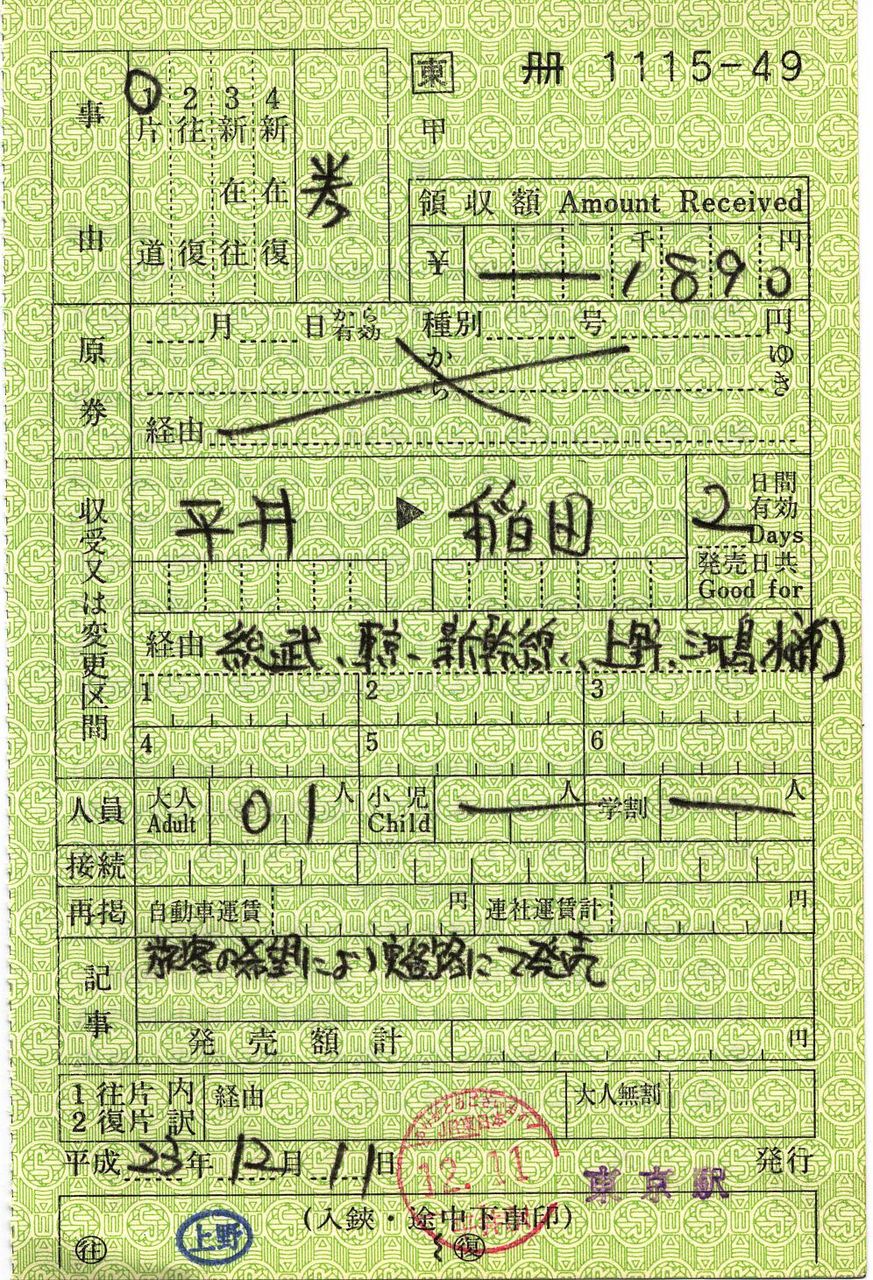 東 冊 1115-49
甲
事由
1 片道
2 往復
3 新在往
4 新在復
領収額 Amount Received
¥ 千 円
1890
原券
月 日から有効 種別 号 円
から ゆき
経由
収受又は変更区間
平井 ▶ 稲田
2 日間有効
Days
発売日共
Good for
経由 総武、東京、新幹線、上野、三河島
1 2 3
4 5 6
人員 大人 Adult 01人 小児 Child 人 学割 人
接続
再掲 自動車運賃 円 連社運賃計 円
記事
旅客の希望により実経路にて発売
発売額計 円
1 往片 内訳 経由 大人無割
2 復片
平成23年12月11日 発行
JR東日本
12.11
東京駅
(入鋏・途中下車印)
往 上野 復